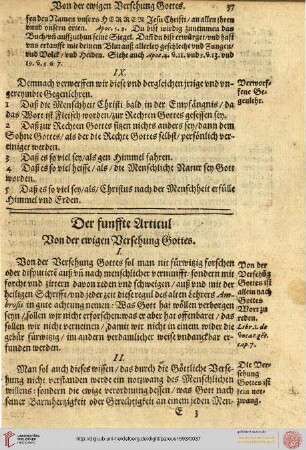 Von der ewigen Versehung Gottes. 37
sen den Namen unsers HERREN Jesu Christi / an allen ihren
vnnd vnsern orten. Apoc. 5. 9. Du bist wirdig zunemen das
Buch vñ auffzuthun seine Sigel. Dañ du bist erwürget / vnd hast
vns erkaufft mit deinem Blut auß allerley geschlecht vnd Zungen /
vnd Volck / vnd Heiden. Siehe auch Apoc. 4. 8. 11.
IX.
Demnach verwerffen wir diese vnd dergleichen jrrige vnd vn-
gereymdte Gegenlehr.
Verworf-
fene Ge-
genlehr.
1 Daß die Menschheit Christi bald in der Empfängnis / da
das Wort ist Fleisch worden / zur Rechten Gottes gesessen sey.
2 Daß zur Rechten Gottes sitzen nichts anders sey / dann dem
Sohne Gottes / als der die Rechte Gottes selbst / persönlich ver-
einiget werden.
3 Daß es so viel sey / als gen Himmel fahren.
4 Daß es so viel heisse / als die Menschliche Natur sey Gott
worden.
5 Daß es so viel sey / als Christus nach der Menschheit erfülle
Himmel vnd Erden.
Der funffte Articul
Von der ewigen Versehung Gottes.
I.
Von der Versehung Gottes sol man nit fürwitzig forschen
oder disputierē auß vñ nach menschlicher vernunfft: sondern mit
forcht vnd zittern davon reden vnd schweigen / auß vnd mit der
heiligen Schrifft / vnd jeder zeit diese regel des alten Lehrers Am-
brosii in gute achtung nemen: Was Gott hat wöllen verborgen
seyn / sollen wir nicht erforschen: was er aber hat offenbaret / das
sollen wir nicht verneinen / damit wir nicht in einem wider die
gebür fürwitzig / im andern verdamlicher weise vndanckbar er-
funden werden.
Von der
Versehūg
Gottes ist
allein nach
Gottes
Wort zu
reden.
Lib. 1. de
vocat. gēt.
cap. 7.
II.
Man sol auch dieses wissen / das durch die Göttliche Verse-
hung nicht verstanden werde ein notzwang des Menschlichen
willens: sondern die ewige verordnung dessen / was Gott nach
seiner Barmhertzigkeit oder Gerechtigkeit an einem jeden Men-
Die Ver-
sehung
Gottes ist
kein not-
zwang.
E 3